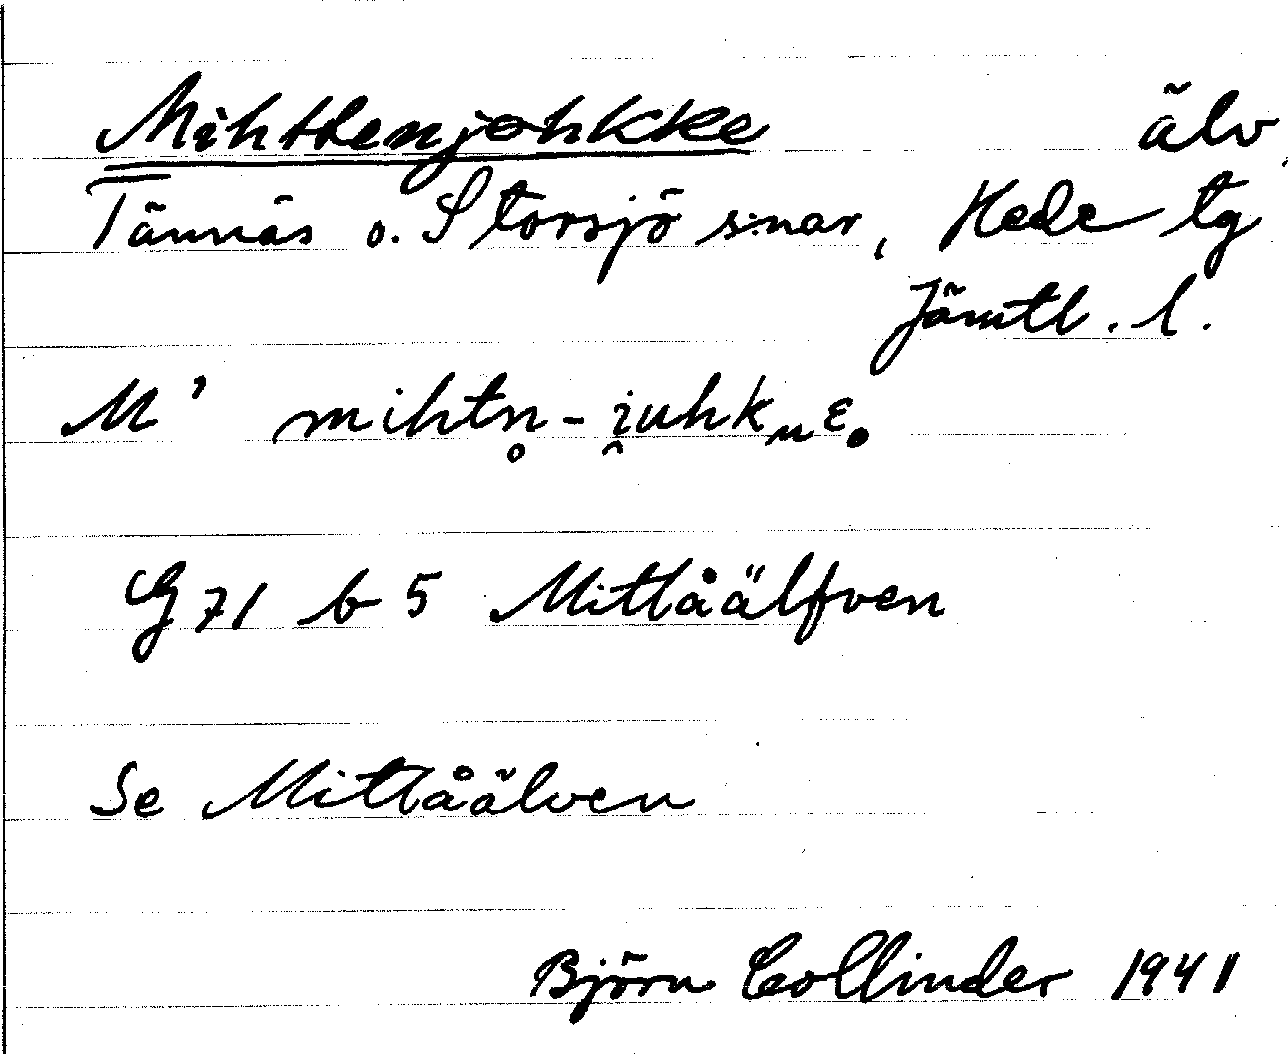 Mihttenjohkke älv,
Tännäs o. Storsjö s:nar, Hede tg
Jämtl. l.
M' mihtn̥-i̯uhk
G 71 b 5 Mittåälfven
Se Mittåälven
Björn Collinder 1941